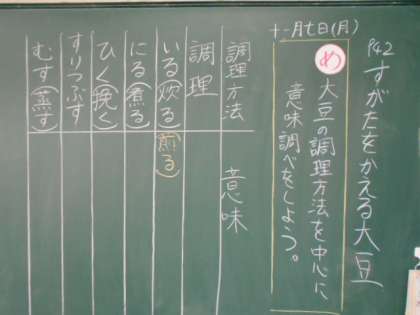 十一月七日(月)
P42 すがたをかえる大豆
め 大豆の調理方法を中心に
意味調べをしよう。
調理方法 意味
調理
いる(炒る)(煎る)
にる(煮る)
ひく(挽く)
すりつぶす
むす(蒸す)